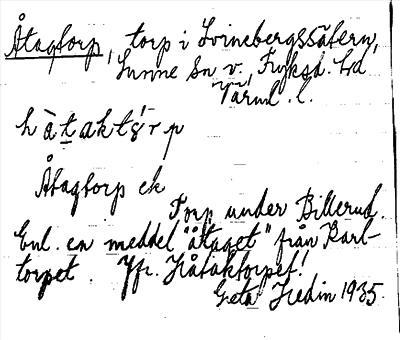 Åtagtorp, torp i Svinebergssätern,
Sunne sn v., Fryksd. hd
Värml. l.
håtaktǫ́rp
Åtagtorp ek
Torp under Billerud.
Enl. en meddel "åtaget" från Karl-
torpet. Jfr. Håtaktorpet!
Greta Hedin 1935.